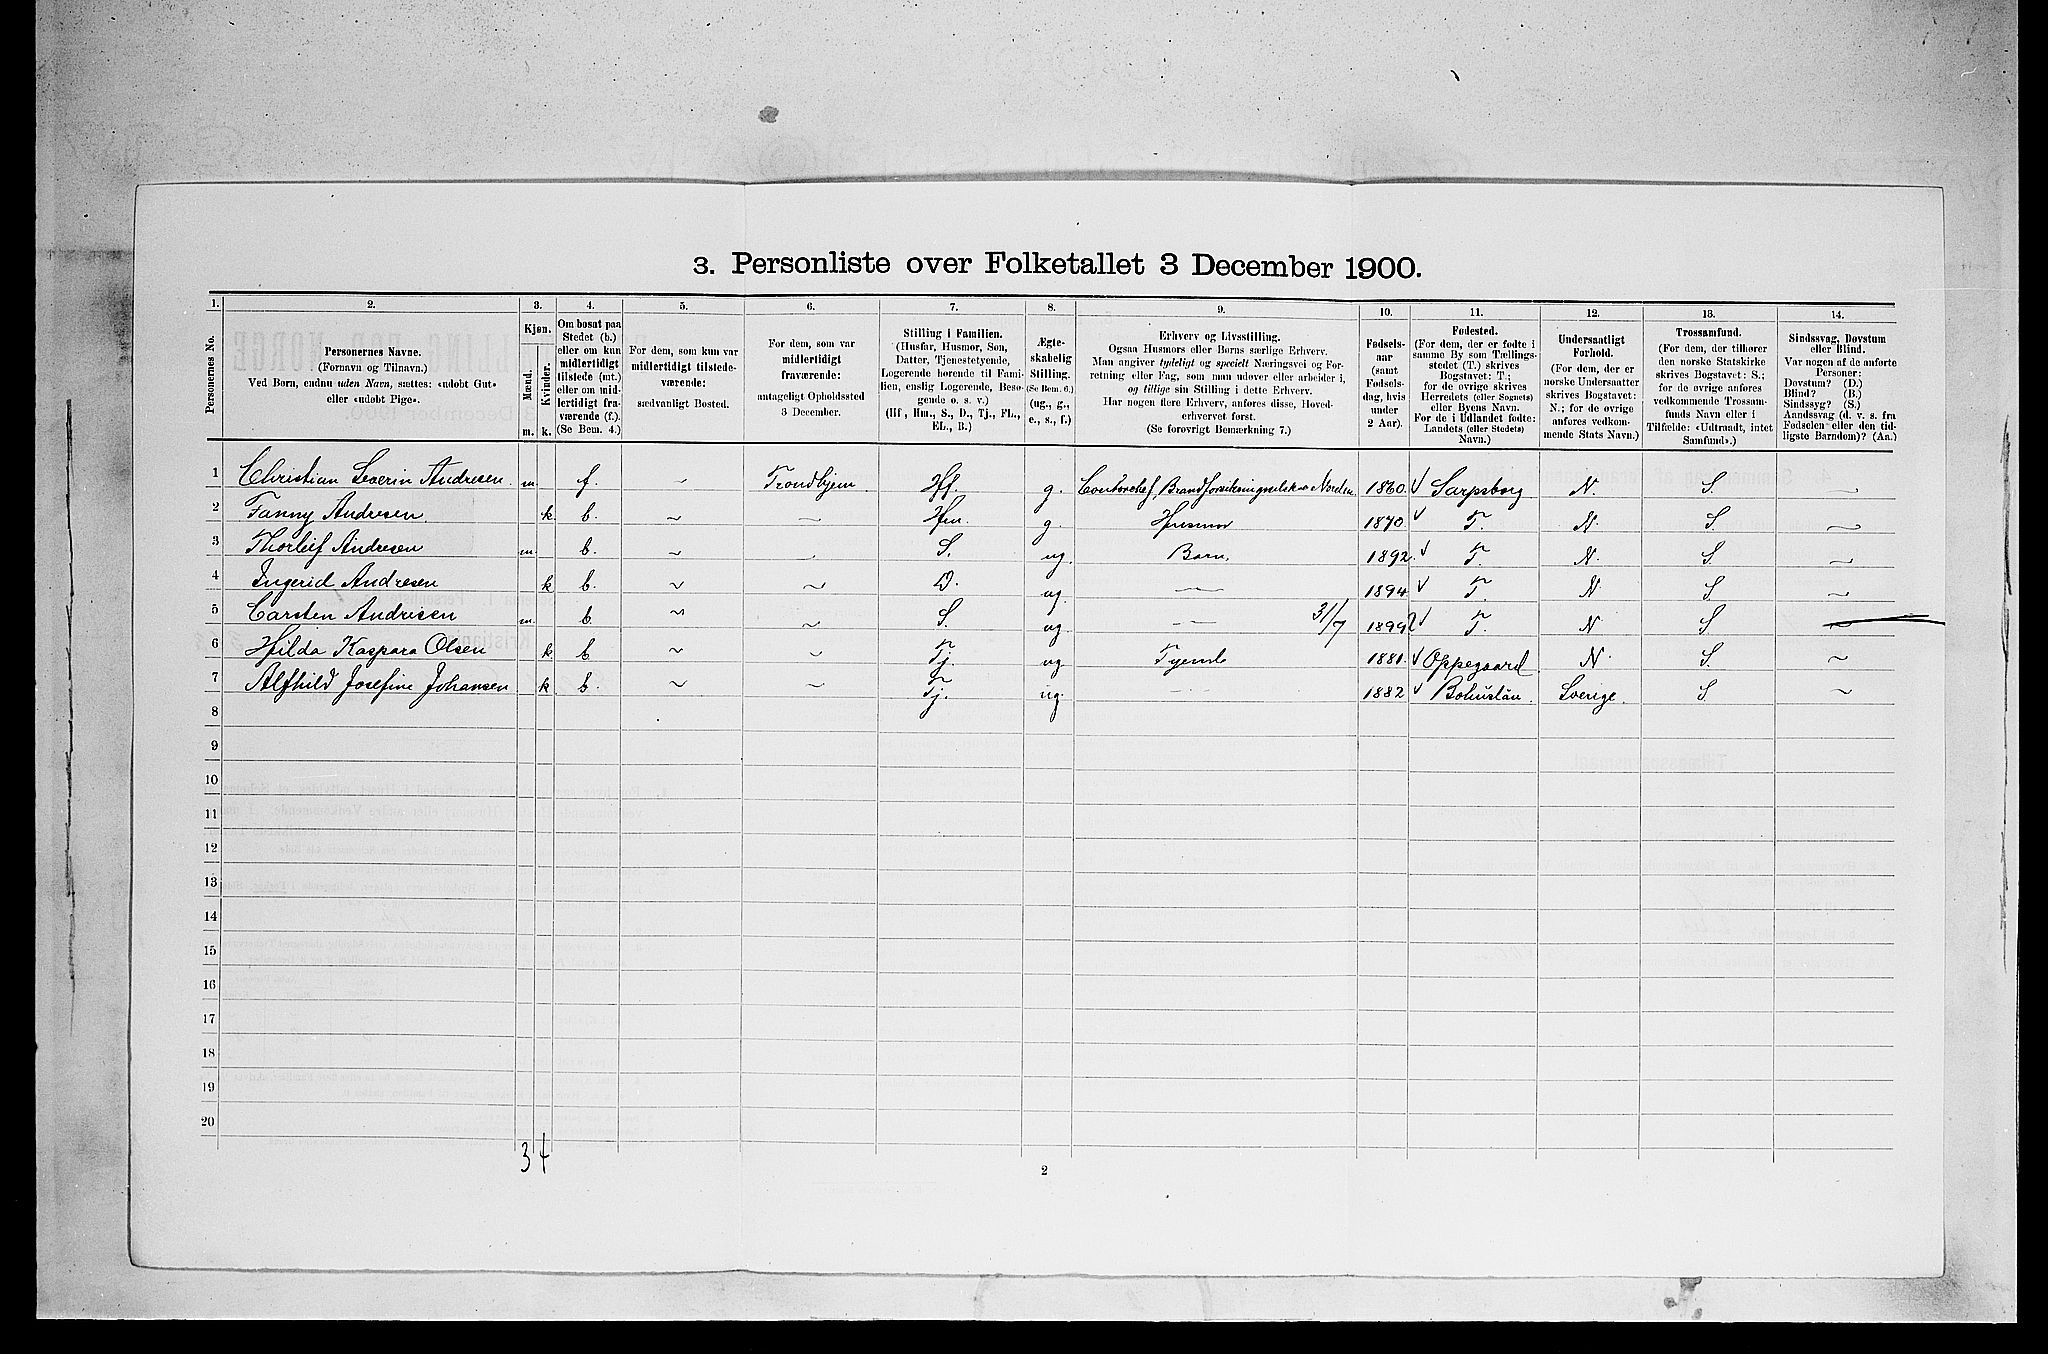 3. Personliste over Folketallet 3 December 1900.
1. 2. 3. 4. 5. 6. 7. 8. 9. 10. 11. 12. 13. 14.
Personernes No.
Personernes Navne.
(Fornavn og Tilnavn.)
Ved Børn, endnu uden Navn, sættes: «udøbt Gut»
eller «udøbt Pige».
Kjøn.
Mænd.
Kvinder.
m. k.
Om bosat paa
Stedet (b.)
eller om kun
midlertidigt
tilstede (mt.)
eller om mid-
lertidigt fra-
værende (f.).
(Se Bem. 4.)
For dem, som kun var
midlertidigt tilstede-
værende:
sædvanligt Bosted.
For dem, som var
midlertidigt
fraværende:
antageligt Opholdssted
3 December.
Stilling i Familien.
(Husfar, Husmor, Søn,
Datter, Tjenestetyende,
Logerende hørende til Fami-
lien, enslig Logerende, Besø-
gende o. s. v.)
(Hf, Hm., S., D., Tj., FL.,
EL., B.)
Ægte-
skabelig
Stilling.
(Se Bem. 6.)
(ug., g.,
e., s., f.)
Erhverv og Livsstilling.
Ogsaa Husmors eller Børns særlige Erhverv.
Man angiver tydeligt og specielt Næringsvei og For-
retning eller Fag, som man udøver eller arbeider i,
og tillige sin Stilling i dette Erhverv.
Har nogen flere Erhverv, anføres disse, Hoved-
erhvervet først.
(Se forøvrigt Bemærkning 7.)
Fødsels-
aar
(samt
Fødsels-
dag, hvis
under
2 Aar).
Fødested.
(For dem, der er fødte i
samme By som Tællings-
stedet (T.) skrives
Bogstavet: T.;
for de øvrige skrives
Herredets (eller Sognets)
eller Byens Navn.
For de i Udlandet fødte:
Landets (eller Stedets)
Navn.)
Undersaatligt
Forhold.
(For dem, der er
norske Undersaatter
skrives Bogstavet:
N.; for de øvrige
anføres vedkom-
mende Stats Navn.)
Trossamfund.
(For dem, der tilhører
den norske Statskirke
skrives Bogstavet: S.;
for de øvrige anføres
vedkommende Trossam-
funds Navn eller i
Tilfælde: «Udtraadt, intet
Samfund».)
Sindssvag, Døvstum
eller Blind.
Var nogen af de anførte
Personer:
Døvstum? (D.)
Blind? (B.)
Sindssyg? (S.)
Aandssvag (d. v. s. fra
Fødselen eller den tid-
ligste Barndom)? (Aa.)
1 Christian Severin Andresen. m. f. ~ Trondhjem Hf. g. Contorchef Brandforsikringselskab Norden 1860. √ Sarpsborg N. S. —
2 Fanny Andresen. k. b. ~ ~ Hm. g. Husmor 1870. √ T. N. S. ~
3 Thorleif Andresen m. b. ~ ~ S. ug. Barn. 1892. √ T. N. S. ~
4 Ingerid Andresen k b. ~ ~ D. ug. — 1894 √ T. N S. ~
5 Carsten Andresen m. b. ~ ~ S. ug. — 31/7 1899 √ T. N S. ~
6 Hilda Kaspara Olsen k. b. ~ ~ Tj. ug. Tyende 1881. √ Oppegaard N. S. ~
7 Alfhild Josefine Johansen k b. ~ ~ Tj. ug. — 1882 √ Bohuslän. Sverige. S. ~
8
9
10
11
12
13
14
15
16
17
18
19
20
3 4
2